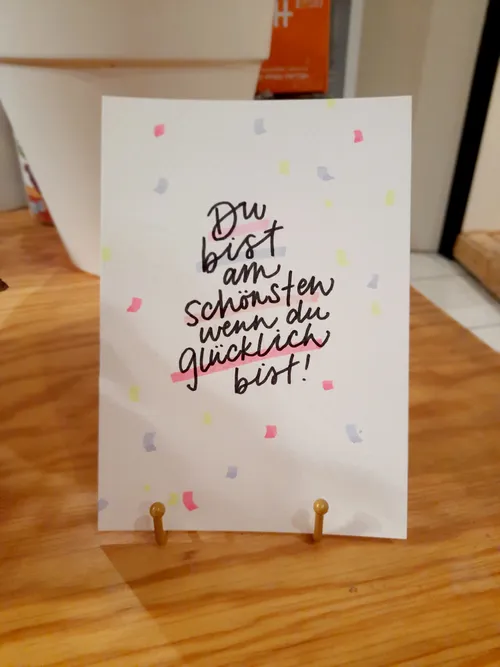 Du
bist
am
schönsten
wenn du
glücklich
bist!